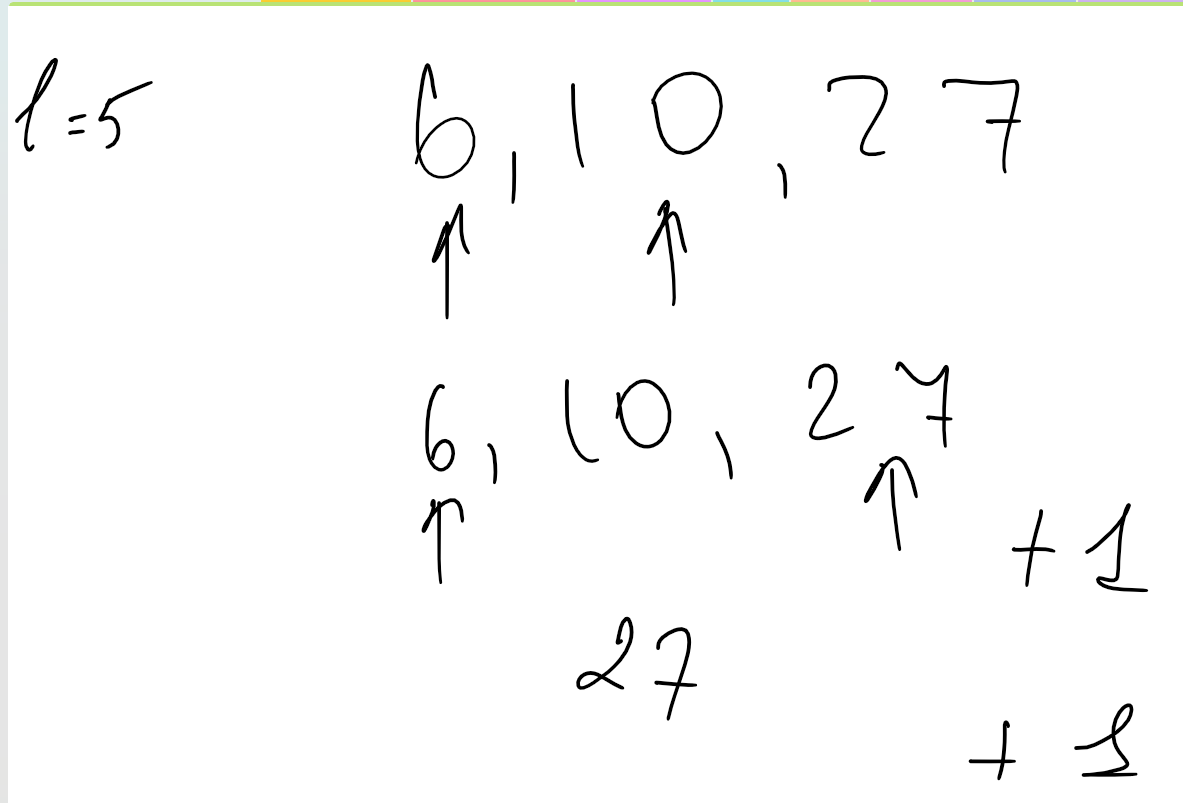 l=5 6,10,27
6,10,27
+1
27
+1